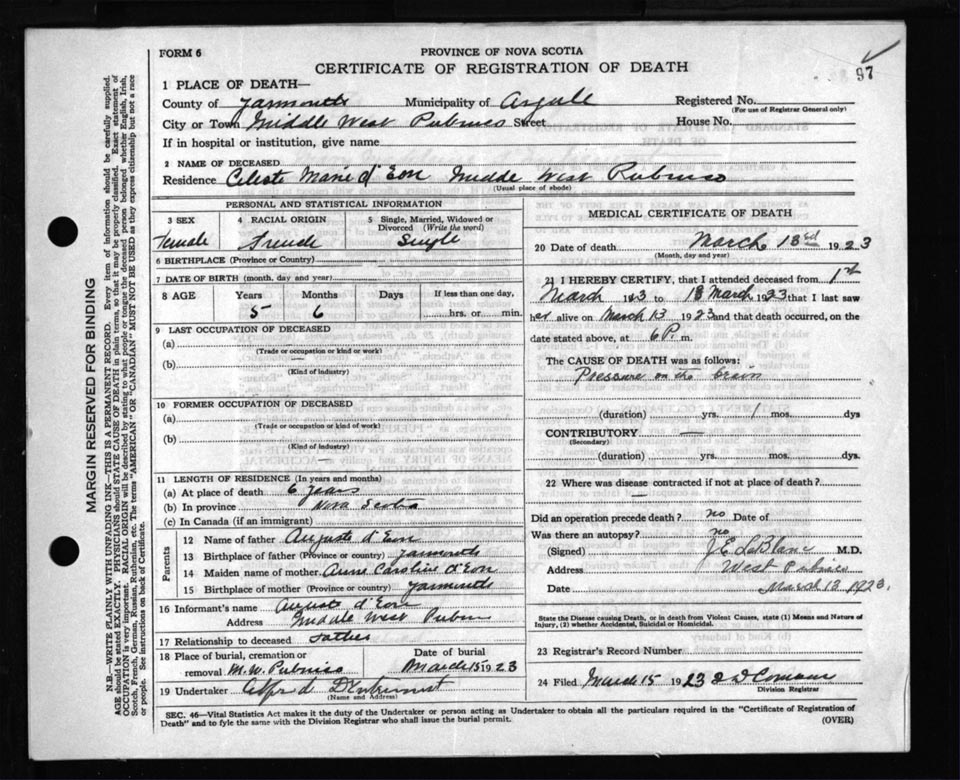 FORM 6
PROVINCE OF NOVA SCOTIA
CERTIFICATE OF REGISTRATION OF DEATH
97
1 PLACE OF DEATH—
County of Yarmouth Municipality of Argyle Registered No.
(For use of Registrar General only)
City or Town Middle West Pubnico Street House No.
If in hospital or institution, give name
2 NAME OF DECEASED
Residence Celest Marie d'Eon Middle West Pubnico
(Usual place of abode)
PERSONAL AND STATISTICAL INFORMATION
3 SEX 4 RACIAL ORIGIN 5 Single, Married, Widowed or Divorced (Write the word)
Female French Single
6 BIRTHPLACE (Province or Country)
7 DATE OF BIRTH (month, day and year)
8 AGE Years Months Days If less than one day,
5 6 hrs. or min.
9 LAST OCCUPATION OF DECEASED
(a)
(Trade or occupation or kind or work)
(b) —
(Kind of industry)
10 FORMER OCCUPATION OF DECEASED
(a)
(Trade or occupation or kind of work)
(b)
(Kind of industry)
—
11 LENGTH OF RESIDENCE (In years and months)
(a) At place of death 6 years
(b) In province Nova Scotia
(c) In Canada (if an immigrant)
Parents
12 Name of father Auguste d'Eon
13 Birthplace of father (Province or country) Yarmouth
14 Maiden name of mother Anne Caroline d'Eon
15 Birthplace of mother (Province or country) Yarmouth
16 Informant's name Auguste d'Eon
Address Middle West Pubnico
17 Relationship to deceased Father
18 Place of burial, cremation or removal M.W. Pubnico
Date of burial March 15 1923
19 Undertaker d'Entremont
(Name and Address)
MEDICAL CERTIFICATE OF DEATH
20 Date of death March 13rd 1923
(Month, day and year)
21 I HEREBY CERTIFY, that I attended deceased from 1st
March 1923 to 13 March 1923 that I last saw
her alive on March 13 1923 and that death occurred, on the
date stated above, at 6 P. m.
The CAUSE OF DEATH was as follows:
Pressure on the brain
(duration) yrs. 1 mos. dys
CONTRIBUTORY —
(Secondary)
(duration) yrs. mos. dys.
22 Where was disease contracted if not at place of death?
—
Did an operation precede death? no Date of
Was there an autopsy? no
(Signed) J E LeBlanc M.D.
Address West Pubnico
Date March 13 1923.
State the Disease causing Death, or in death from Violent Causes, state (1) Means and Nature of
Injury, (2) whether Accidental, Suicidal or Homicidal.
23 Registrar's Record Number
24 Filed March 15 1923
Division Registrar
SEC. 46—Vital Statistics Act makes it the duty of the Undertaker or person acting as Undertaker to obtain all the particulars required in the "Certificate of Registration of
Death" and to fyle the same with the Division Registrar who shall issue the burial permit.
(OVER)
MARGIN RESERVED FOR BINDING
N.B.—WRITE PLAINLY WITH UNFADING INK—THIS IS A PERMANENT RECORD. Every item of information should be carefully supplied.
AGE should be stated EXACTLY. PHYSICIANS should STATE CAUSE OF DEATH in plain terms, so that it may be properly classified. Exact statement of
OCCUPATION is very important. RACIAL ORIGIN will be described by stating to what people or tongue the deceased person belonged whether English, Irish,
Scotch, French, German, Russian, Ruthenian, etc. The terms "AMERICAN" OR "CANADIAN" MUST NOT BE USED as they express citizenship but not a race
or people. See instructions on back of Certificate.